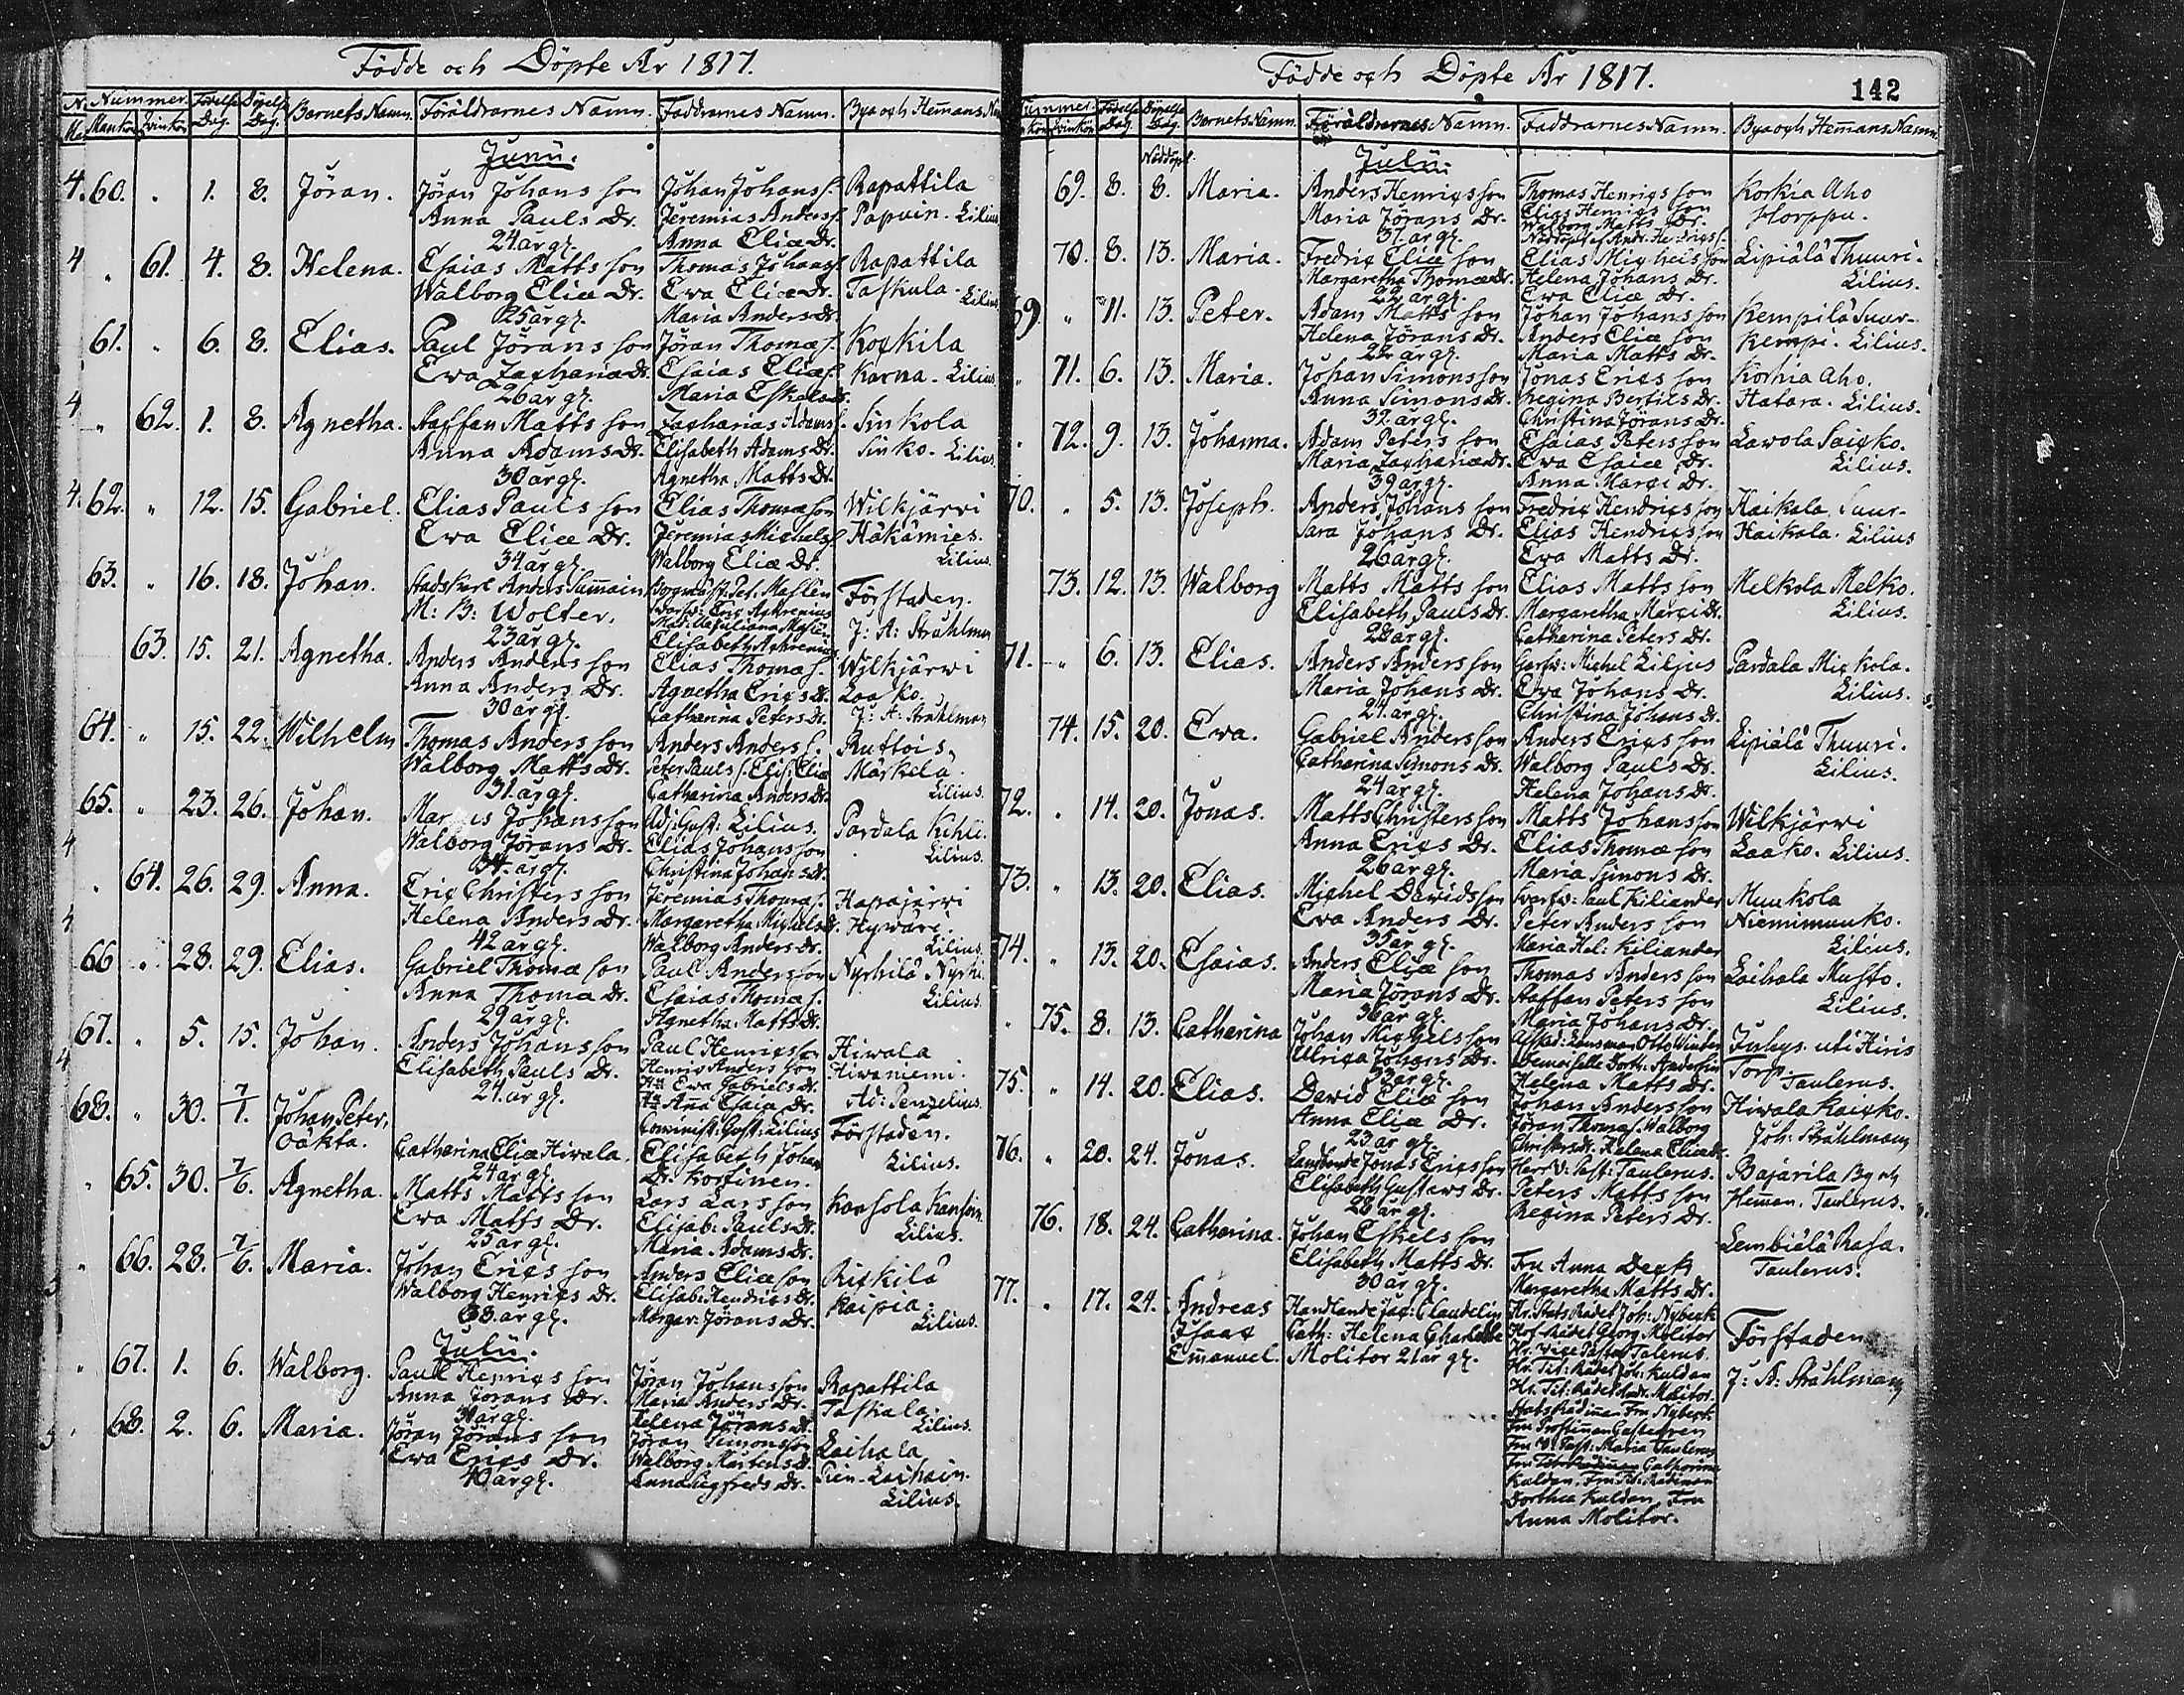 Födde och Döpte År 1817.
Nummer. Födelse Dag. Döpelse Dag. Barnets Namn. Föräldrarnes Namn. Faddrarnes Namn. Bya och Hemans
Mankön Qvinkön
Junii.
60. " 1. 8. Jöran. Jöran Johans son Johan Johans s. Rapattila
Anna Pauls Dr. Jeremias Anders s. Papuin. Lilius
24 år gl. Anna Eliæ Dr.
" 61. 4. 8. Helena. Esaias Matts son Thomas Johans s. Rapattila
Walborg Eliæ Dr. Ewa Eliæ Dr. Taskula. Lilius
25 år gl. Maria Anders Dr.
61. " 6. 8. Elias. Paul Jörans son Jöran Thomæ s. Kockila
Ewa Zachariæ Dr. Esaias Eliæ s. Karna. Lilius
26 år gl. Maria Eskels Dr.
" 62. 1. 8. Agnetha. Staffan Matts son Zacharias Adams s. Sinkola
Anna Adams Dr. Elisabeth Adams Dr. Sinko. Lilius.
30 år gl. Agnetha Matts Dr.
62. " 12. 15. Gabriel. Elias Pauls son Elias Thomæ son Wilkjärwi
Ewa Eliæ Dr. Jeremias Michels s. Häkämies.
34 år gl. Walborg Eliæ Dr. Lilius.
63. " 16. 18. Johan. Stadskarl Anders Samain Borgmäst. Pet. Mahlen Förstaden.
M: B: Wolter. Elisabeth Askrenius J: A: Strahlman
23 år gl.
63. 15. 21. Agnetha. Anders Anders son Elias Thomæ s. Wilkjärwi
Anna Anders Dr. Agnetha Erics Dr. Laako.
30 år gl. Catharina Peters Dr. J: A: Strahlman
64. " 15. 22. Wilhelm Thomas Anders son Anders Anders s. Ruttois.
Walborg Matts Dr. Peter Pauls s. Elis. Eliæ Märkelä.
31. år gl. Catharina Anders Dr. Lilius.
65. " 23. 26. Johan. Marcus Johans son Adj: Gust: Lilius. Pardala Kihli.
Walborg Jörans Dr. Elias Johans son Lilius.
34. år gl. Christina Johans Dr.
" 64. 26. 29. Anna. Eric Christers son Jeremias Thomæ s. Hapajärwi
Helena Anders Dr. Margaretha Michels Dr. Hywäri.
42 år gl. Walborg Anders Dr. Lilius.
66 " 28. 29. Elias. Gabriel Thomæ son Paul Anders son Nyrhilä Nyrhi.
Anna Thomæ Dr. Esaias Thomæ s. Lilius.
29 år gl. Agnetha Matts Dr.
67. " 5. 15. Johan. Anders Johans son Paul Henrics son Hiwala
Elisabeth Pauls Dr. Henric Anders son Hiwaniemi.
24. år gl. Ewa Gabriels Dr. Ad: Penzelius.
Anna Esaiæ Dr.
68. " 30. 7/1. Johan Peter, Comminist: Gust: Lilius Förstaden.
Oäkta. Catharina Eliæ Hiwala. Elisabeth Johan Lilius.
24 år gl. Dr. Kortinen.
" 65. 30. 7/6. Agnetha. Matts Matts son Lars Lars son Kansola
Ewa Matts Dr. Elisab: Pauls Dr. Lilius.
25 år gl. Maria Adams Dr.
" 66. 28. 7/6. Maria. Johan Erics son Anders Eliæ son Rickilä
Walborg Henrics Dr. Elisab: Hendrics Dr. Kaipia.
33. år gl. Margar: Jörans Dr. Lilius.
Julii.
" 67. 1. 6. Walborg. Paul Henrics son Jöran Johans son Rapattila
Anna Jörans Dr. Maria Anders Dr. Taskala.
Helena Jörans Dr. Lilius.
68. 2. 6. Maria. Jöran Jörans son Jöran Simons son Laihala
Ewa Erics Dr. Walborg Martens Dr. Pien-Laihain.
40 år gl. Anna Sigfreds Dr. Lilius.
Födde och Döpte År 1817.
142
Nummer. Födelse Dag. Döpelse Dag. Barnets Namn. Föräldrarnes Namn. Faddrarnes Namn. Bya och Hemans Namn.
Qvinkön
Nöddöpt. Julii.
69. 8. 8. Maria. Anders Henrics son Thomas Henrics son Korkia Aho
Maria Jörans Dr. Elias Henrics son Horppu.
37. år gl. Walborg Matts Dr.
Nöddöpt af Andr. Hendrics s.
70. 8. 13. Maria. Fredric Eliæ son Elias Michels son Lipiälä Thuuri.
Margaretha Thomæ Dr. Helena Johans Dr. Lilius.
22 år gl. Ewa Eliæ Dr.
69. " 11. 13. Peter. Adam Matts son Johan Johans son Kempilä Suur-
Helena Jörans Dr. Anders Eliæ son Kempi. Lilius.
22 år gl. Maria Matts Dr.
" 71. 6. 13. Maria. Johan Simons son Jonas Erics son Korkia Aho.
Anna Simons Dr. Regina Bertils Dr. Hatara. Lilius.
32. år gl. Christina Jörans Dr.
" 72. 9. 13. Johanna. Adam Peters son Esaias Peters son Lawola Saicko.
Maria Zachariæ Dr. Ewa Esaiæ Dr. Lilius.
39 år gl. Anna Marci Dr.
70. " 5. 13. Joseph. Anders Johans son Fredric Hendrics son Haikala, Suur-
Sara Johans Dr. Elias Hendrics son Haikala. Lilius
26 år gl. Ewa Matts Dr.
73. 12. 13. Walborg Matts Matts son Elias Matts son Melkola Melko.
Elisabeth Pauls Dr. Margaretha Marci Dr. Lilius.
28 år gl. Catharina Peters Dr.
71. " 6. 13. Elias. Anders Anders son Garfw: Michel Lilius Pardala Mickola.
Maria Johans Dr. Ewa Johans Dr. Lilius.
24. år gl. Christina Johans Dr.
74. 15. 20. Ewa. Gabriel Anders son Anders Erics son Lipiälä Thuuri.
Catharina Simons Dr. Walborg Pauls Dr. Lilius.
24 år gl. Helena Johans Dr.
72. " 14. 20. Jonas. Matts Christers son Matts Johans son Wilkjärwi
Anna Erics Dr. Elias Thomæ son Laako. Lilius.
26 år gl. Maria Simons Dr.
73. " 13. 20. Elias. Michel Dawids son Swarfw: Paul Kiliander Muukola
Ewa Anders Dr. Peter Anders son Niemimuuko.
35 år gl. Maria Hel: Kiliander Lilius.
74. " 13. 20. Esaias. Anders Eliæ son Thomas Anders son Laihala Musto.
Maria Jörans Dr. Staffan Peters son Lilius.
36 år gl. Maria Johans Dr.
" 75. 8. 13. Catharina Johan Michels son Länsman Otto Winter Juhys. uti Hiris
Ulrica Johans Dr. Demoiselle Doth: Anderssin Torp. Taulerus.
33 år gl. Helena Matts Dr.
75. " 14. 20. Elias. Dawid Eliæ son Johan Anders son Hiwala Kaicko.
Anna Eliæ Dr. Jöran Thomæ s. Walborg Joh: Strahlman
23 år gl. Christers dr. Helena Eliæ dr.
76. " 20. 24. Jonas. Landbonde Jonas Erics son Herr V: Past: Taulerus. Bajarila By och
Elisabeth Gustavs Dr. Peters Matts son Heman. Taulerus.
28 år gl. Regina Peters Dr.
76. 18. 24. Catharina. Johan Eskels son Fru Anna Deck Lembiälä Rasa.
Elisabeth Matts Dr. Margaretha Matts Dr. Taulerus.
30 år gl.
77. " 17. 24. Andreas Handlande Jac: Claudelin Hr. Stats Rådet Joh: Nyberk Förstaden
Isaac Cath: Helena Charlotte Hof Rådet Georg Molitor
Emanuel. Molitor 21 år gl. Hr. Vice Pastor Talerus. J: A: Strahlman
Hr. Tit: Rådet Joh: Kuldan
Hr. Tit: Rådet Andr. Molitor.
Fru Nyberk
Fru Gastegren
Fru V: Past: Maria Taulerus
Fru Catharina
Kuldan, Fru Tit: Rådiman
Dorthea Kuldan, Fru
Anna Molitor.